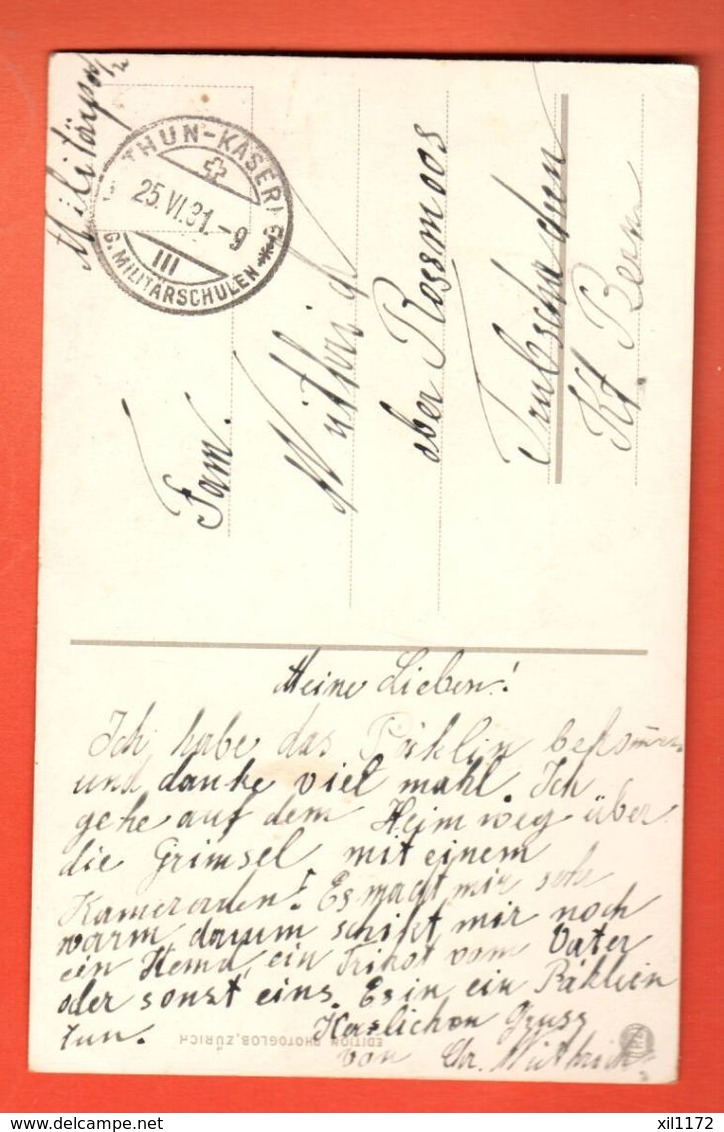 Militärpost
THUN-KASERNE
25.VI.31.-9
III
G. MILITÄRSCHULEN
Fam.
Wüthrich
ober Rossmoos
Trubschachen
Kt. Bern
Meine Lieben!
Ich habe das Päklin bekommen
und danke viel mahl. Ich
gehe auf dem Heimweg über
die Grimsel mit einem
Kameraden! Es magt mir sehr
warm darum schikt mir noch
ein Hemd, ein Trikot vom Vater
oder sonst eins. Es in ein Päklein
tun. Herzlichen Gruss
von Chr. Wüthrich
EDITION PHOTOGLOB, ZÜRICH
delcampe.net
xil1172